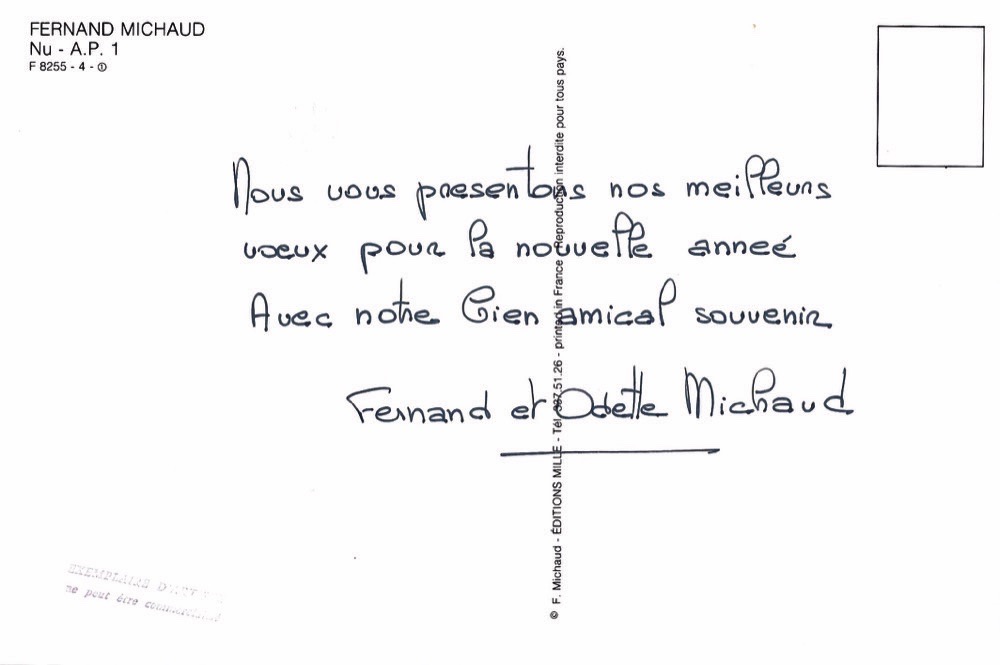 FERNAND MICHAUD
Nu - A.P. 1
F 8255 - 4 - ①
Nous vous presentons nos meilleurs
voeux pour la nouvelle anneé
Avec notre bien amical souvenir
Fernand et Odette Michaud
© F. Michaud - ÉDITIONS MILLE - Tél. 51.26 - printed in France Reproduction interdite pour tous pays.
EXEMPLAIRE
ne peut être